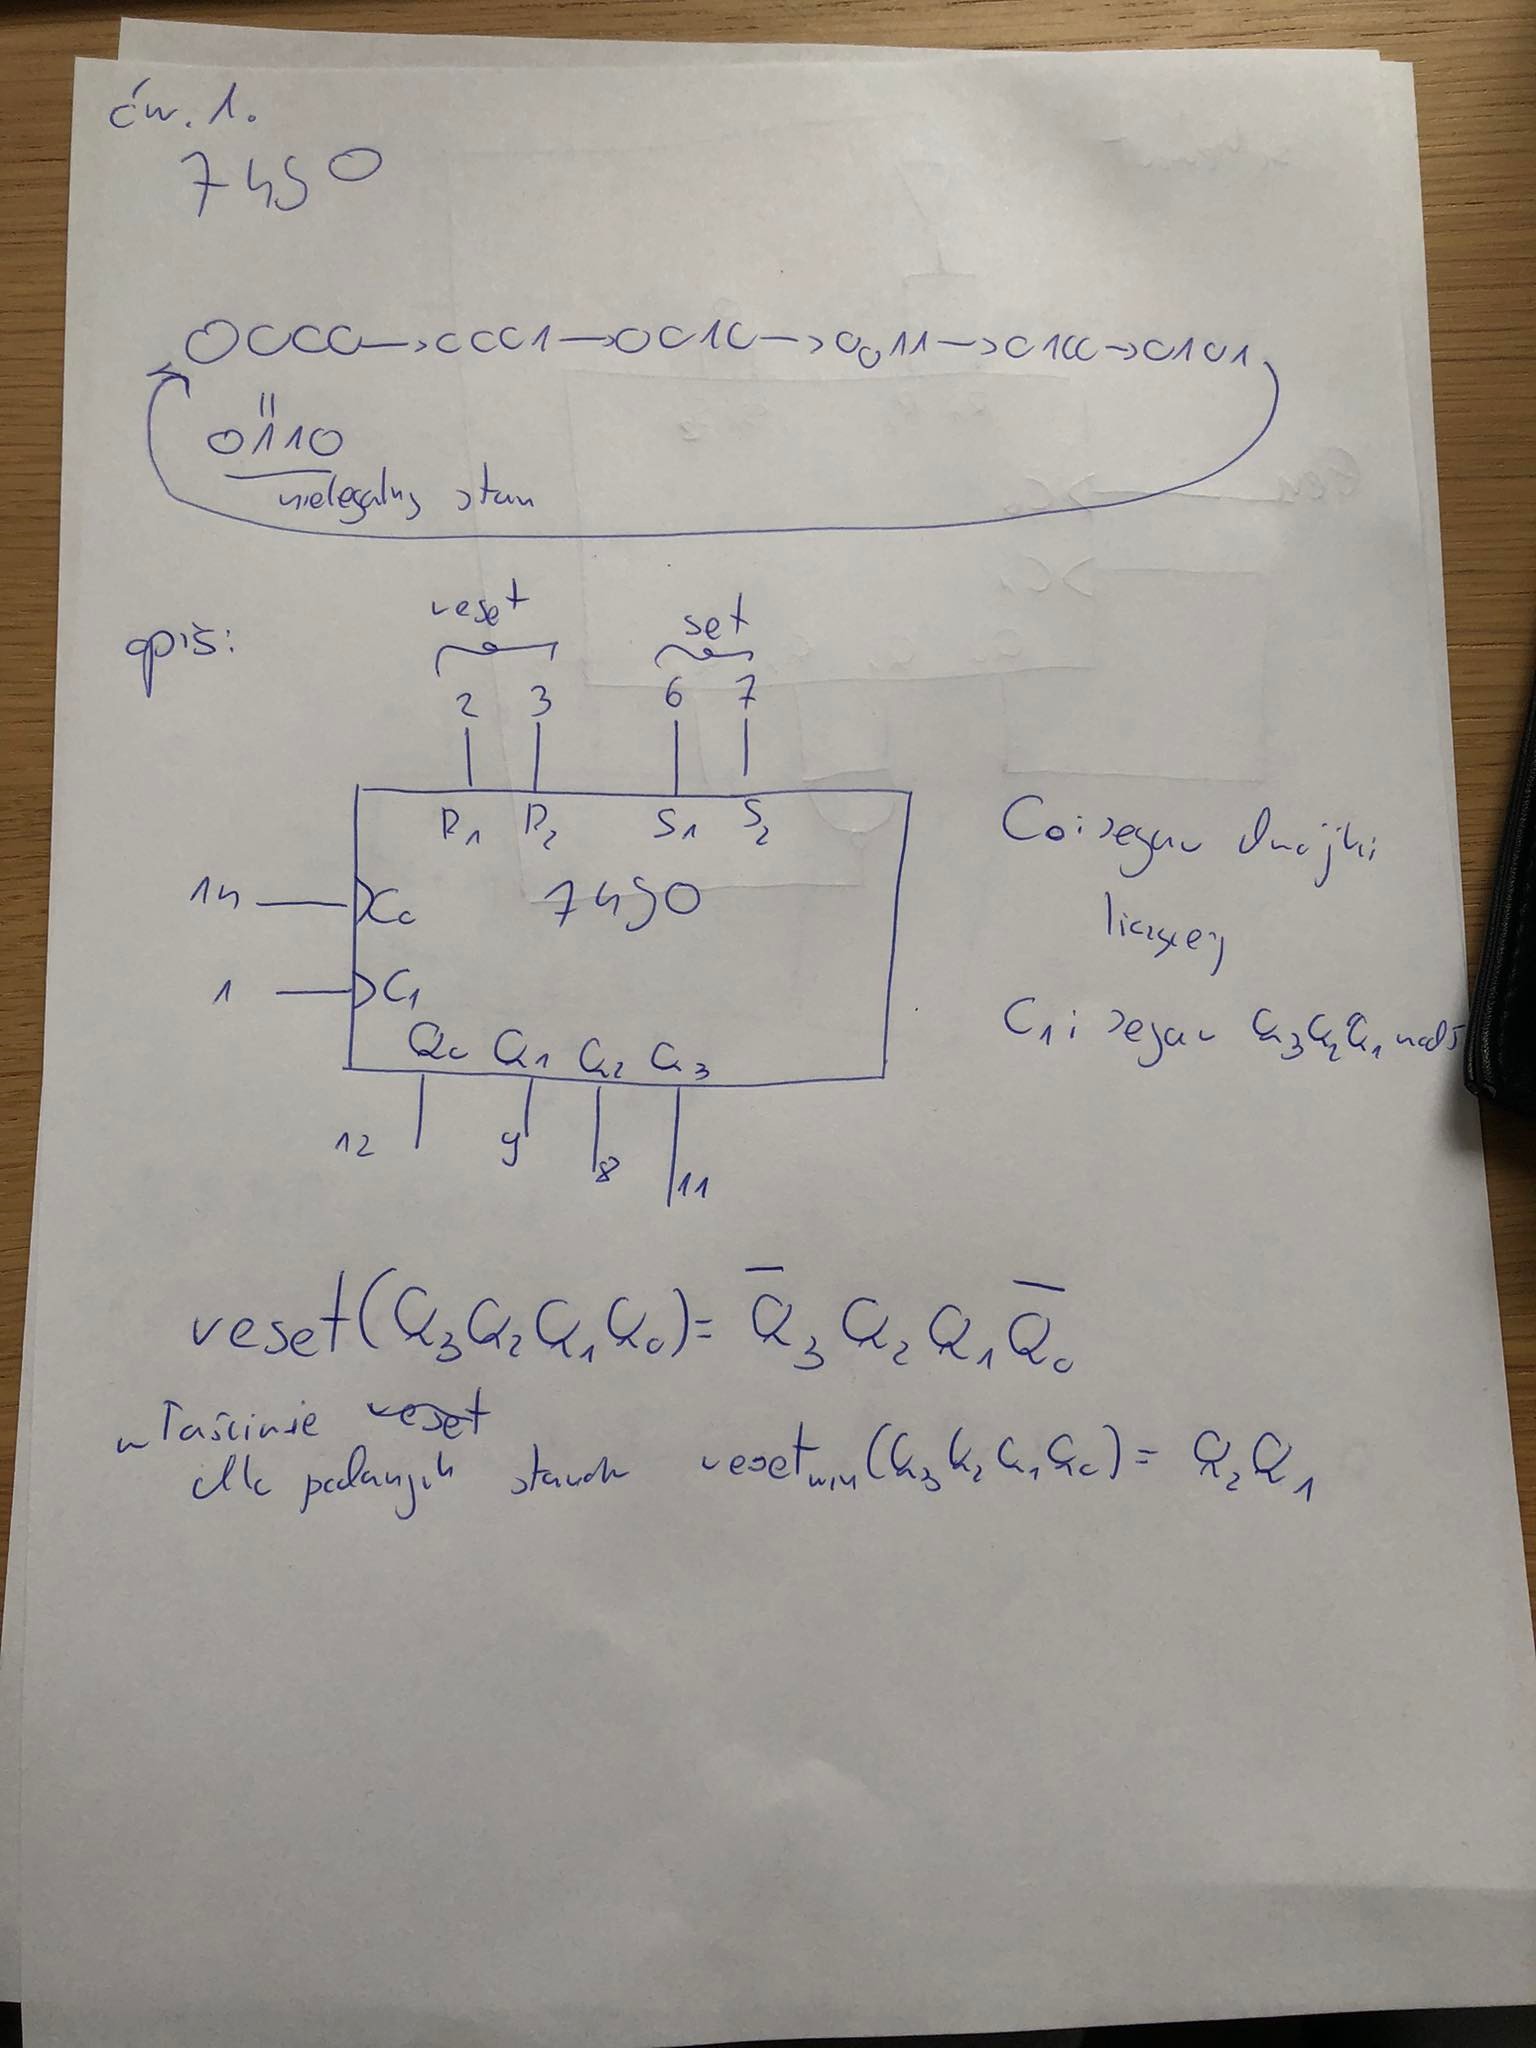 ćw. 1.
7490
0000 → 0001 → 0010 → 0011 → 0100 → 0101
"
0110
nielegalny stan
opis:
reset set
2 3 6 7
R1 R2 S1 S2
14 C0 7490
1 C1
Q0 Q1 Q2 Q3
12 9 8 11
C0: zegar dwójki
liczącej
C1: zegar Q3Q2Q1
reset(Q3Q2Q1Q0) = Q̅3 Q2 Q1 Q̅0
właściwie reset
dla podanych stanów resetmin(Q3Q2Q1Q0) = Q2Q1